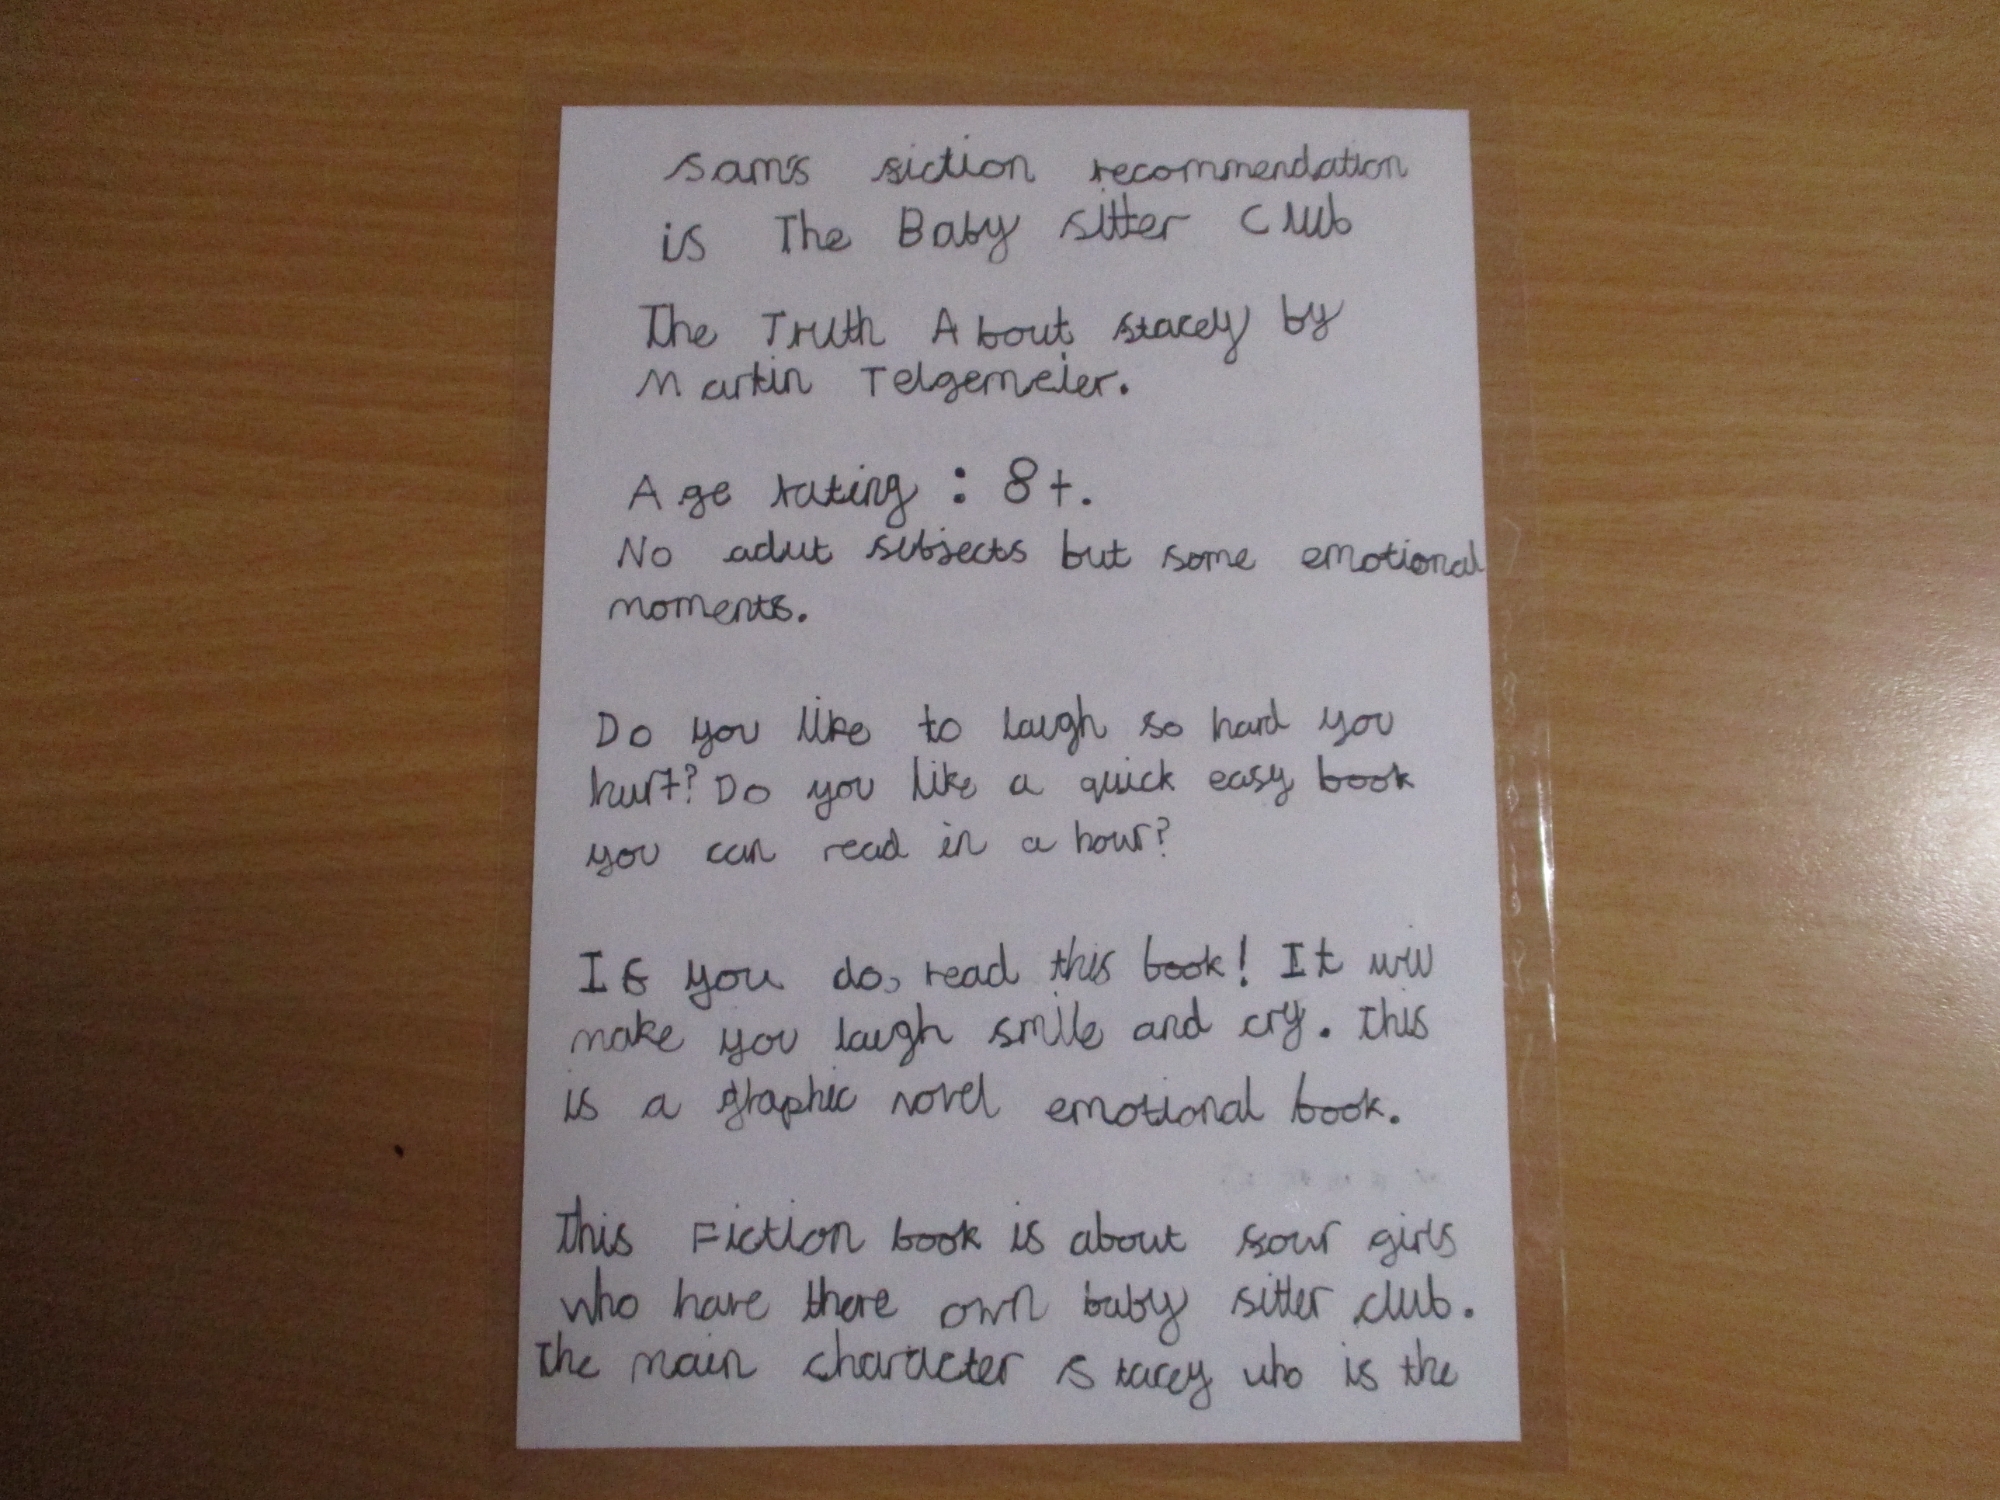 Sam's fiction recommendation
is The Baby sitter Club
The Truth About Stacey by
Martin Telgemeier.
Age rating : 8+.
No adut subjects but some emotional
moments.
Do you like to laugh so hard you
hurt? Do you like a quick easy book
you can read in a hour?
If you do, read this book! It will
make you laugh smile and cry. This
is a graphic novel emotional book.
This Fiction book is about four girls
who have there own baby sitter club.
The main character is tacey who is the